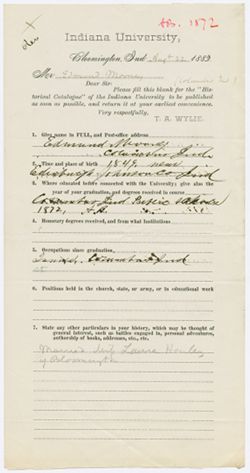 A.B. 1872
Indiana University,
Bloomington, Ind. Aug 22 1889.
Mr Edmund Mooney
Columbus Ind
Dear Sir:
Please fill this blank for the "His-
torical Catalogue" of the Indiana University to be published
as soon as possible, and return it at your earliest convenience.
Very respectfully,
T. A. WYLIE.
1. Give name in FULL, and Post-office address
Edmund Mooney
Columbus Ind.
2. Time and place of birth 1849, near
Edinburgh Johnson Co Ind
3. Where educated before connected with the University; give also the
year of your graduation, and degrees received in course
Columbus Ind Public Schools
1872, A.B.
4. Honorary degrees received, and from what Institutions
5. Occupations since graduation
Columbus Ind
6. Positions held in the church, state, or army, or in educational work
7. State any other particulars in your history, which may be thought of
general interest, such as battles engaged in, personal adventures,
authorship of books, addresses, etc., etc.
Married Miss Laura
of Bloomington